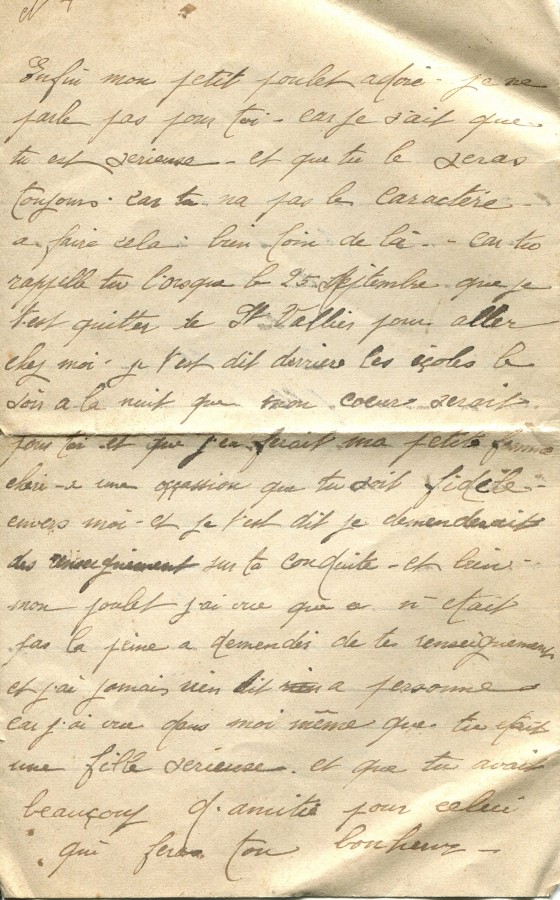 Enfin mon petit poulet adoré - je ne
parle pas pour toi - car je sait que
tu est serieuse - et que tu le seras
toujours - car tu na pas le caractère -
a faire cela - bien loin de là - car tu
rappelle tu lorsque le 25 Septembre que je
t'est quitter de St Vallier pour aller
chez moi - je t'est dit derrière les écoles le
soir a la nuit que mon coeur serait
pour toi et que j'en ferait ma petite femme
cheri - a une occassion que tu soit fidèle -
envers moi - et je t'est dit je demenderait
des renseignement sur ta conduite - et bien -
mon poulet j'ai vue que ce n'était
pas la peine a demender de tes renseignements
et j'ai jamais rien dit a personne
car j'ai vue dans moi même que tu était
une fille serieuse - et que tu avait
beauçoup d'amitié pour celui
qui feras ton bonheur -